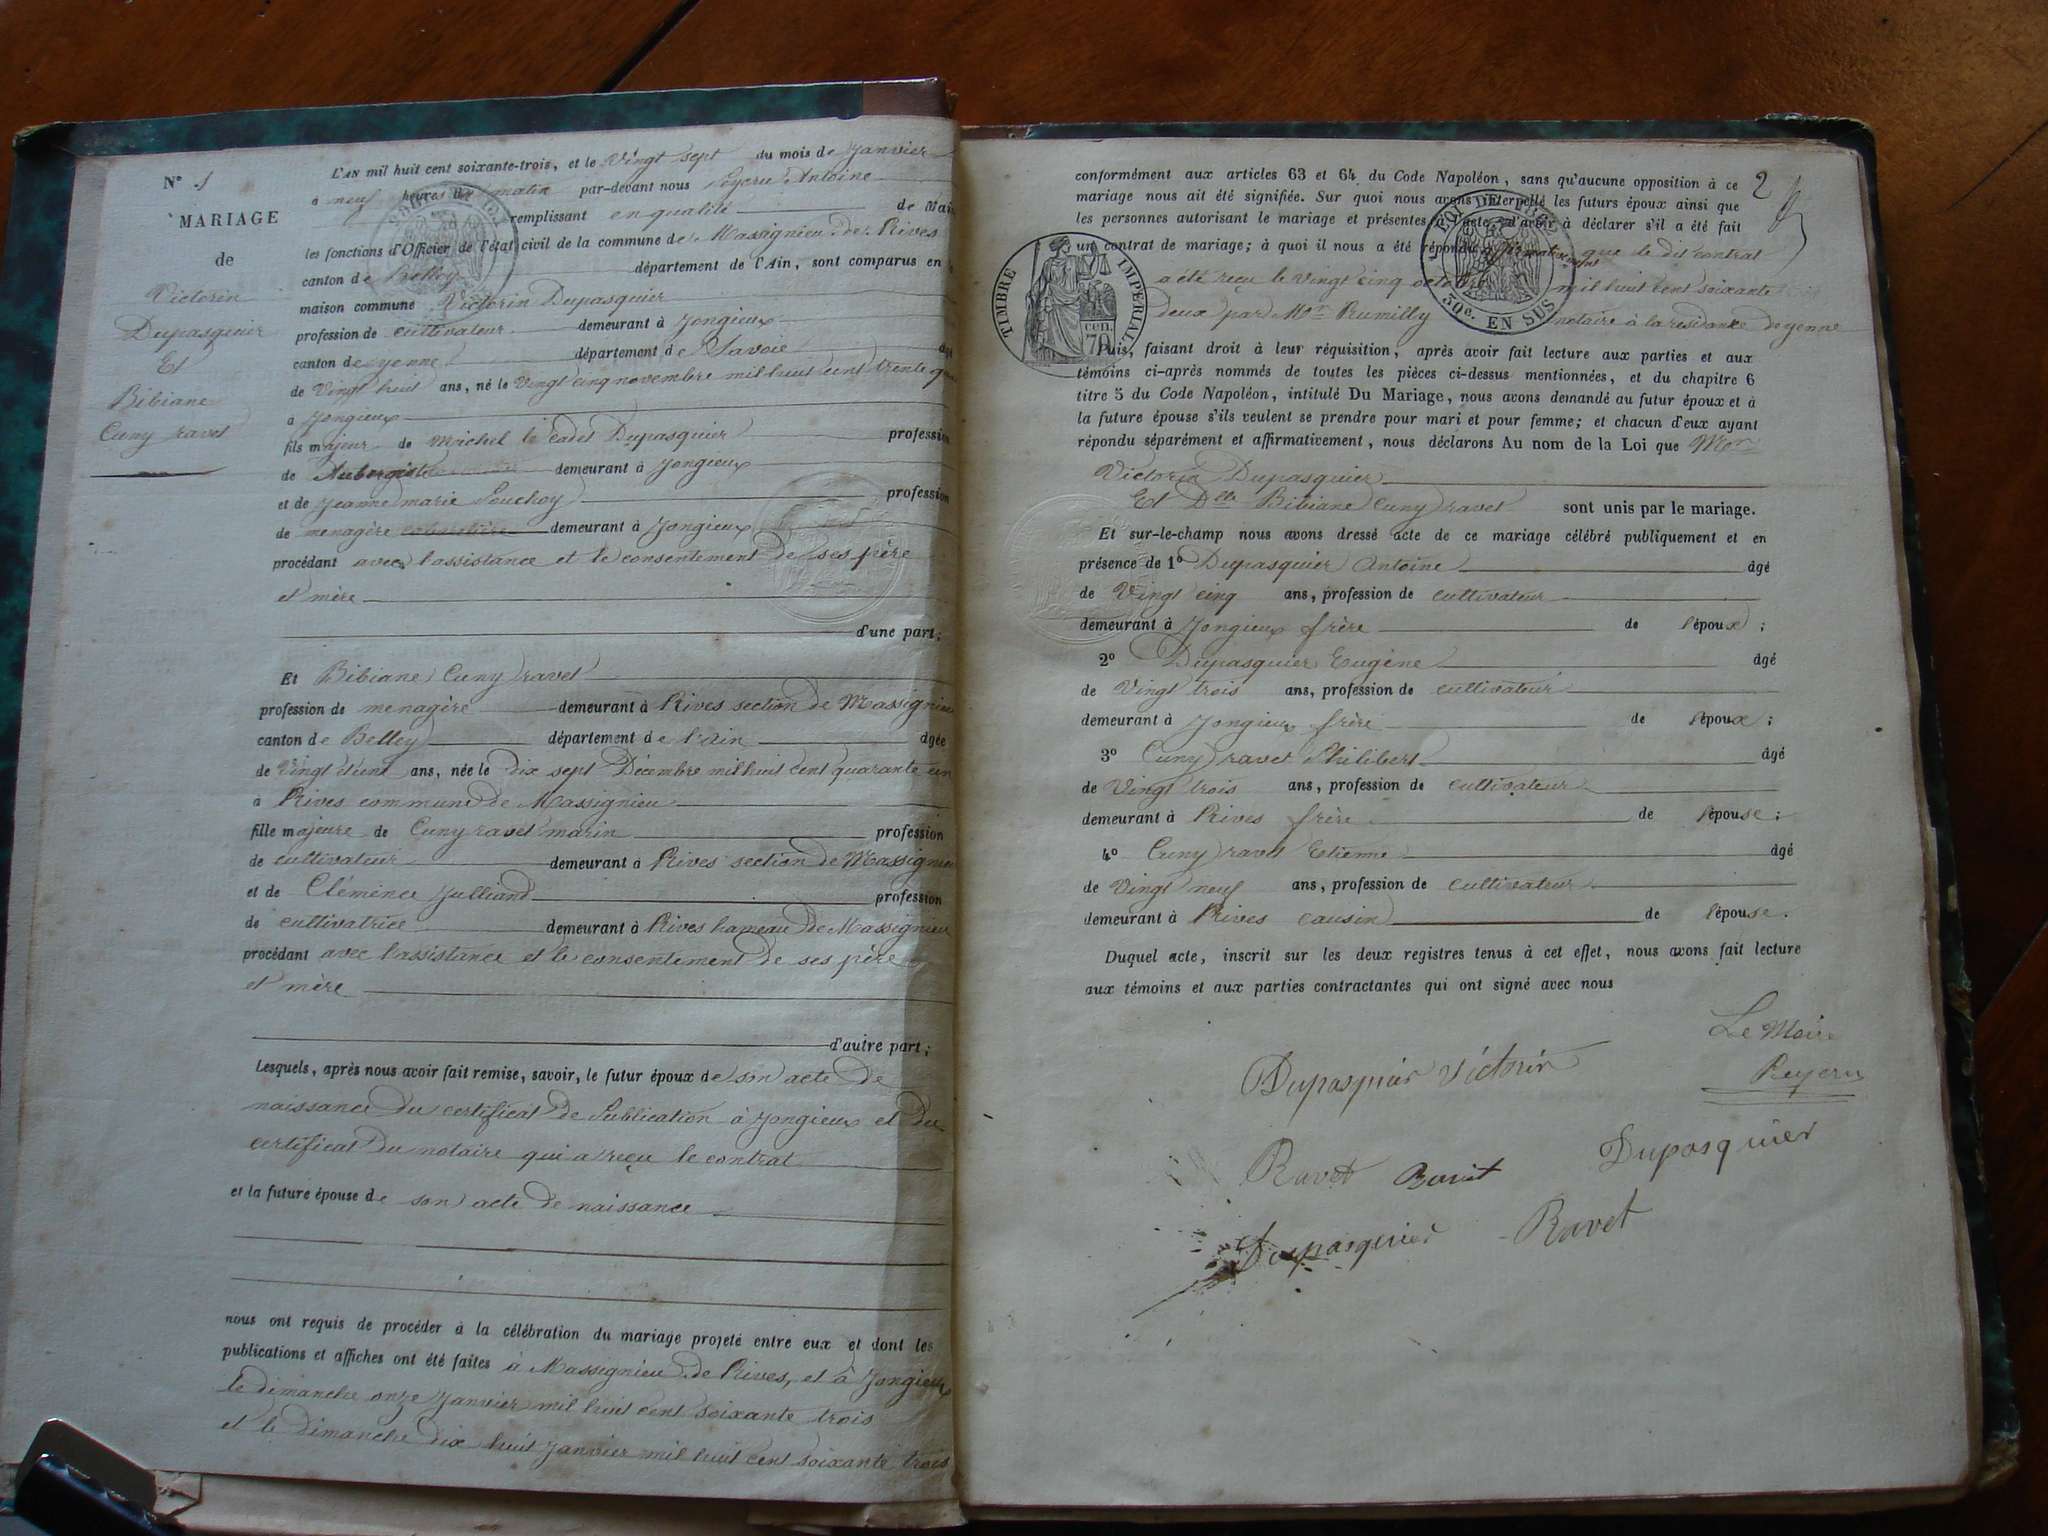 N° 1
MARIAGE
de
Victorin
Dupasquier
Et
Bibiane
Cuny ravet
L'AN mil huit cent soixante-trois, et le Vingt sept du mois de Janvier
à neuf heures du matin par-devant nous Peyeru Antoine
remplissant en qualité de Mai
les fonctions d'Officier de l'état civil de la commune de Massignieu de Rives
canton de Belley département de l'Ain, sont comparus en
maison commune Victorin Dupasquier
profession de cultivateur demeurant à Jongieux
canton de yenne département de Savoie âgé
de Vingt huit ans, né le Vingt cinq novembre mil huit cent trente qua
à Jongieux
fils majeur de Michel le cadet Dupasquier profession
de Aubergiste demeurant à Jongieux
et de Jeanne marie Souchoy profession
de menagère demeurant à Jongieux
procédant avec l'assistance et le consentement de ses père
et mère
d'une part;
Et Bibiane Cuny ravet
profession de menagère demeurant à Rives section de Massignieu
canton de Belley département de l'Ain âgée
de Vingt et une ans, née le dix sept Décembre mil huit cent quarante un
à Rives commune de Massignieu
fille majeure de Cuny ravet marin profession
de cultivateur demeurant à Rives section de Massignieu
et de Clémence Julliand profession
de cultivatrice demeurant à Rives hameau de Massignieu
procédant avec l'assistance et le consentement de ses père
et mère
d'autre part;
Lesquels, après nous avoir fait remise, savoir, le futur époux de son acte de
naissance du certificat de Publication à Jongieux et du
certificat du notaire qui a reçu le contrat
et la future épouse de son acte de naissance
nous ont requis de procéder à la célébration du mariage projeté entre eux et dont les
publications et affiches ont été faites à Massignieu de Rives, et à Jongieux
le dimanche onze Janvier mil huit cent soixante trois
et le dimanche dix huit Janvier mil huit cent soixante trois
2
conformément aux articles 63 et 64 du Code Napoléon, sans qu'aucune opposition à ce
mariage nous ait été signifiée. Sur quoi nous avons interpellé les futurs époux ainsi que
les personnes autorisant le mariage et présentes à l'acte, d'avoir à déclarer s'il a été fait
un contrat de mariage; à quoi il nous a été répondu affirmativement que le dit contrat
a été reçu le Vingt cinq octobre mil huit cent soixante
deux par Me Rumilly notaire à la residance de yenne
TIMBRE IMPERIAL
cen.
70
30c. EN SUS
Puis, faisant droit à leur réquisition, après avoir fait lecture aux parties et aux
témoins ci-après nommés de toutes les pièces ci-dessus mentionnées, et du chapitre 6
titre 5 du Code Napoléon, intitulé Du Mariage, nous avons demandé au futur époux et à
la future épouse s'ils veulent se prendre pour mari et pour femme; et chacun d'eux ayant
répondu séparément et affirmativement, nous déclarons Au nom de la Loi que Mer
Victorin Dupasquier
Et Dlle Bibiane Cuny ravet sont unis par le mariage.
Et sur-le-champ nous avons dressé acte de ce mariage célébré publiquement et en
présence de 1° Dupasquier Antoine âgé
de Vingt cinq ans, profession de cultivateur
demeurant à Jongieux frère de l'époux;
2° Dupasquier Eugène âgé
de Vingt trois ans, profession de cultivateur
demeurant à Jongieux frère de l'époux;
3° Cuny ravet Philibert âgé
de Vingt trois ans, profession de cultivateur
demeurant à Rives frère de l'épouse;
4° Cuny ravet Etienne âgé
de Vingt neuf ans, profession de cultivateur
demeurant à Rives causin de l'épouse.
Duquel acte, inscrit sur les deux registres tenus à cet effet, nous avons fait lecture
aux témoins et aux parties contractantes qui ont signé avec nous
Le Maire
Dupasquier Victorin
Peyeru
Dupasquier
Ravet Ravet
Dupasquier Ravet